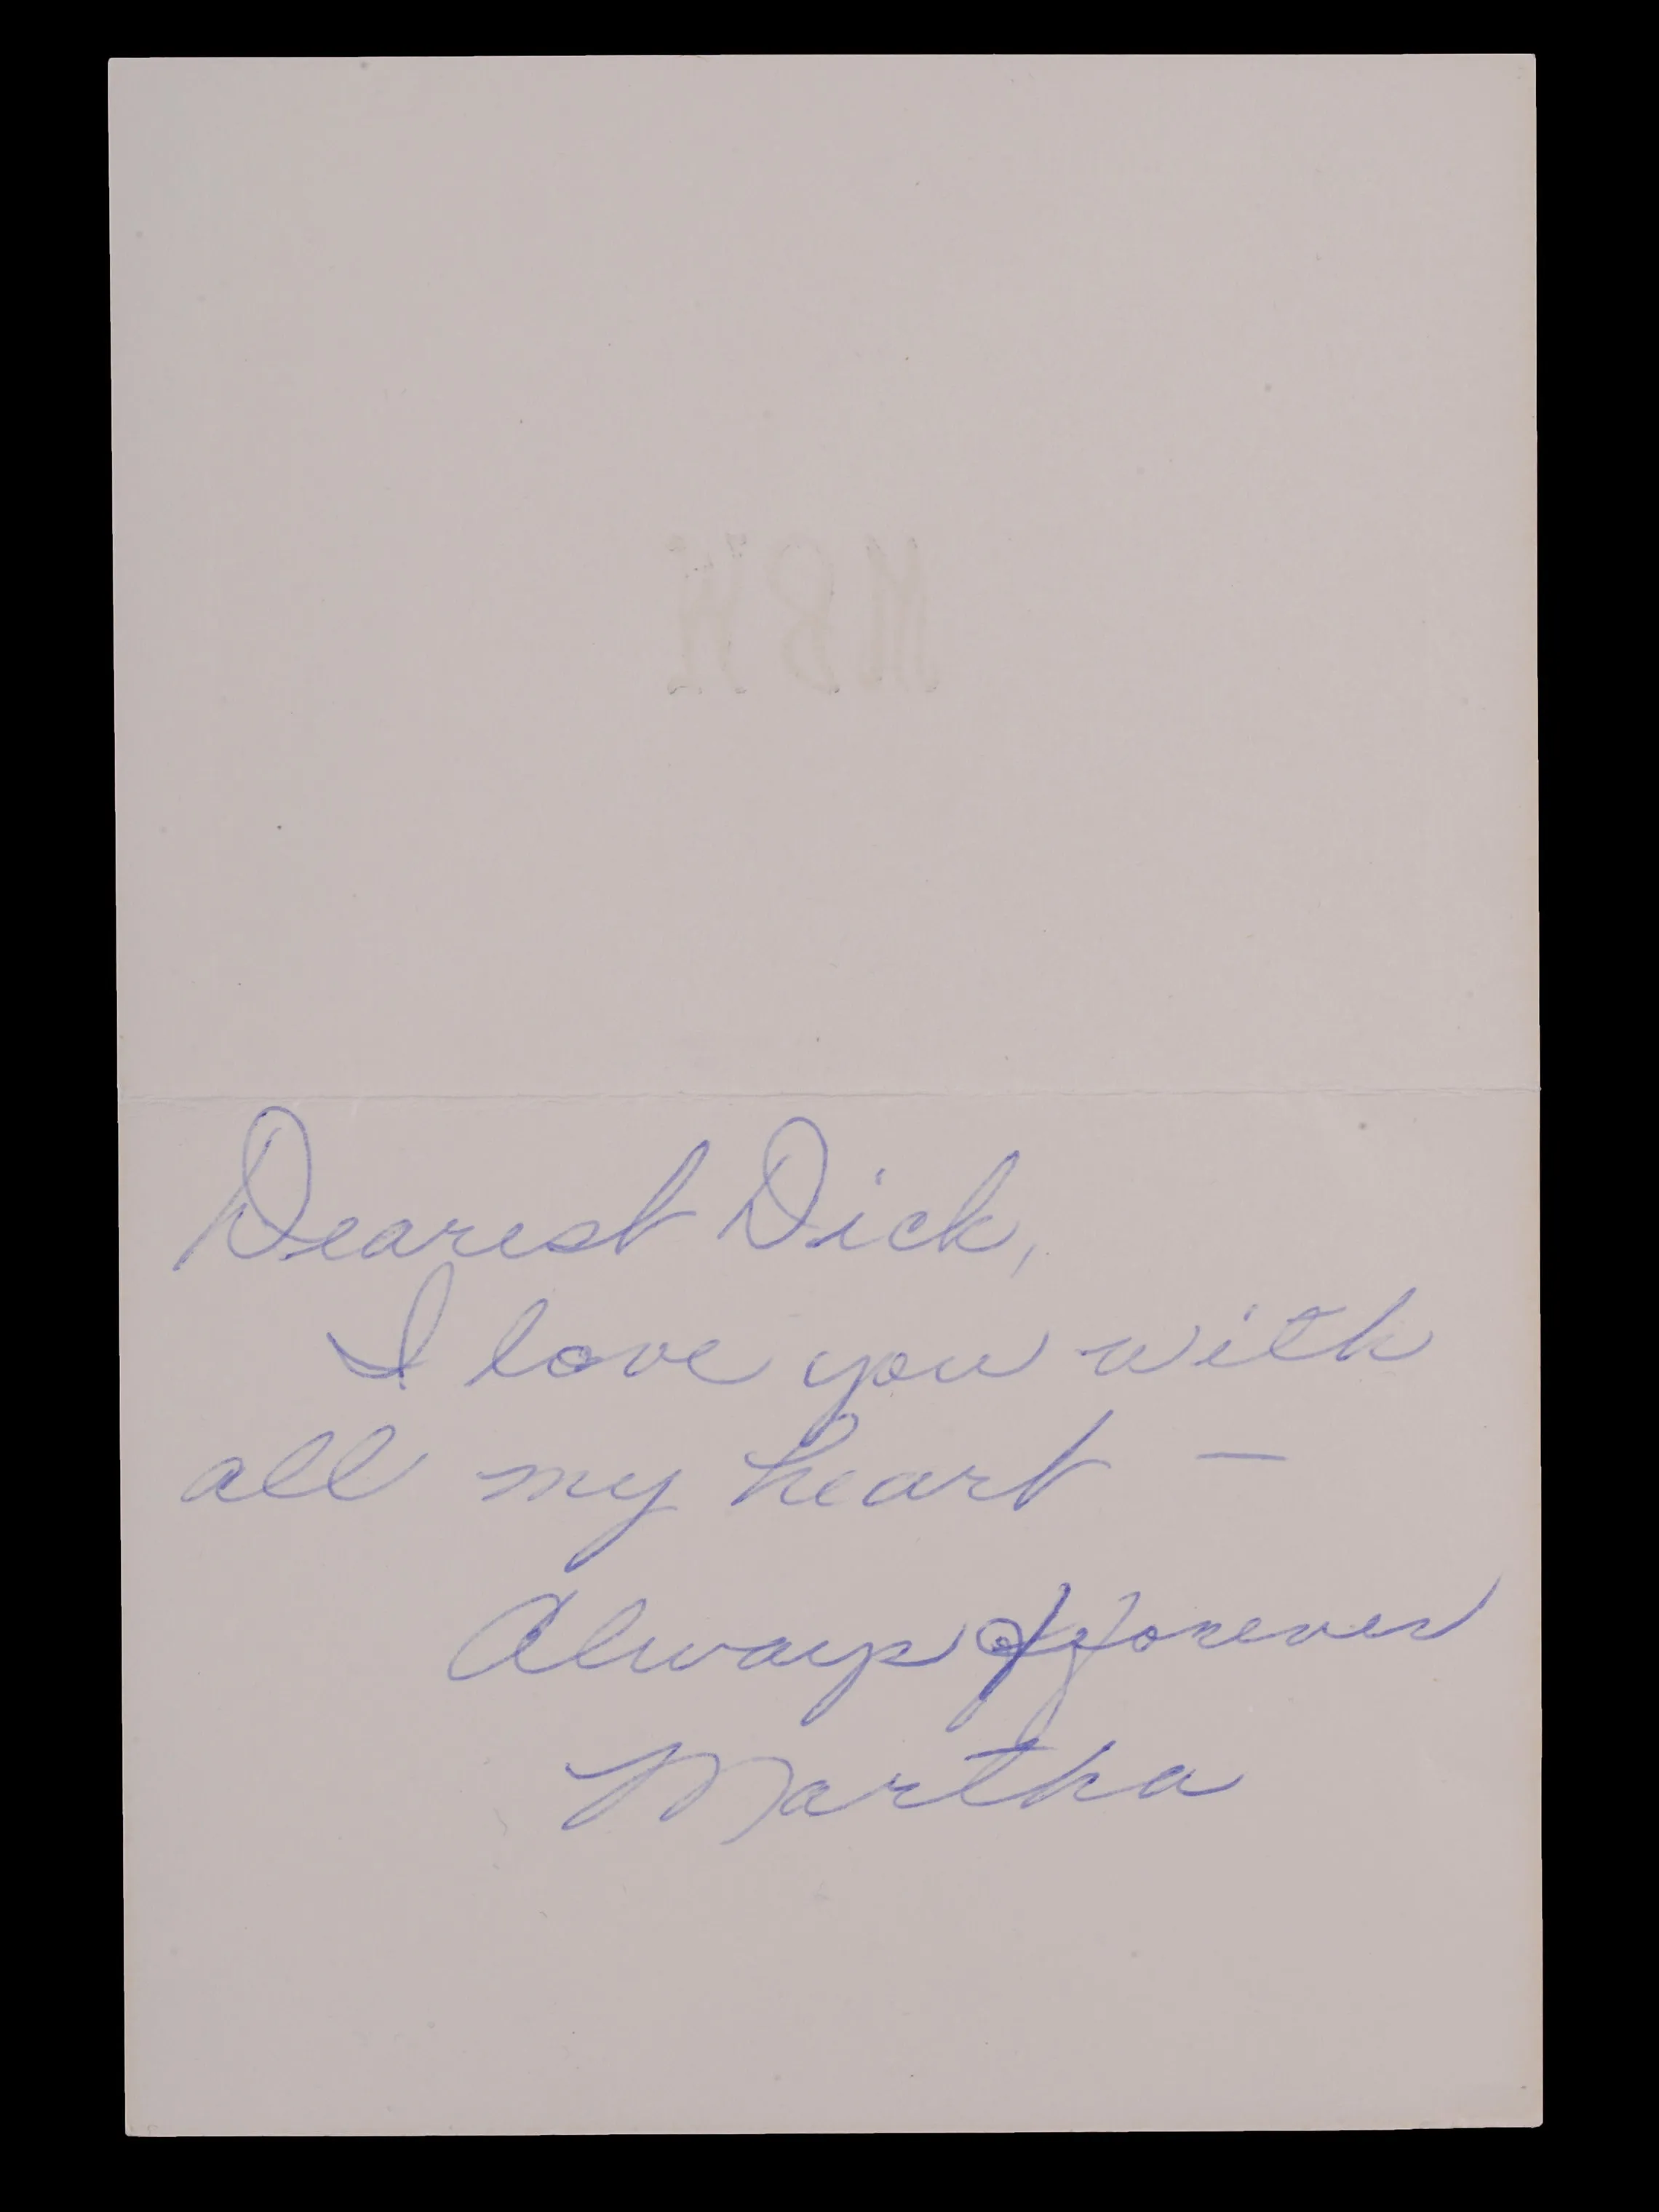 Dearest Dick,
I love you with
all my heart —
Always & forever
Martha